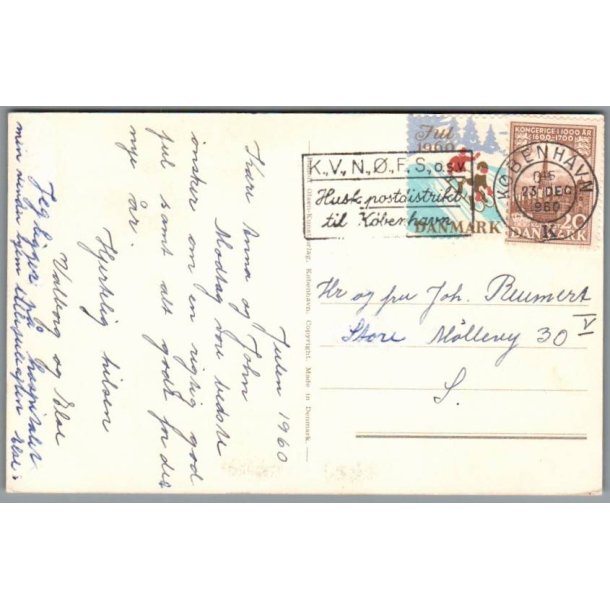 Julen 1960
Kære Anna og John
Modtag vore bedste
ønsker om en rigtig god
jul samt alt godt for det
nye år.
Hjertelig hilsen
Valborg og Else
Jeg ligger på hospitalet
min hjem Else
Jul
1960
DANMARK
KONGERIGE I 1000 ÅR
1600-1700
30
DANMARK
KØBENHAVN
23 DEC
1960
K
K.V.,N.,Ø.,F.,S., o.s.v.
Husk postdistrikt
til København
Hr og fru Joh. Reumert
Store Möllevej 30 V
S.
København. Copyright. Made in Denmark.